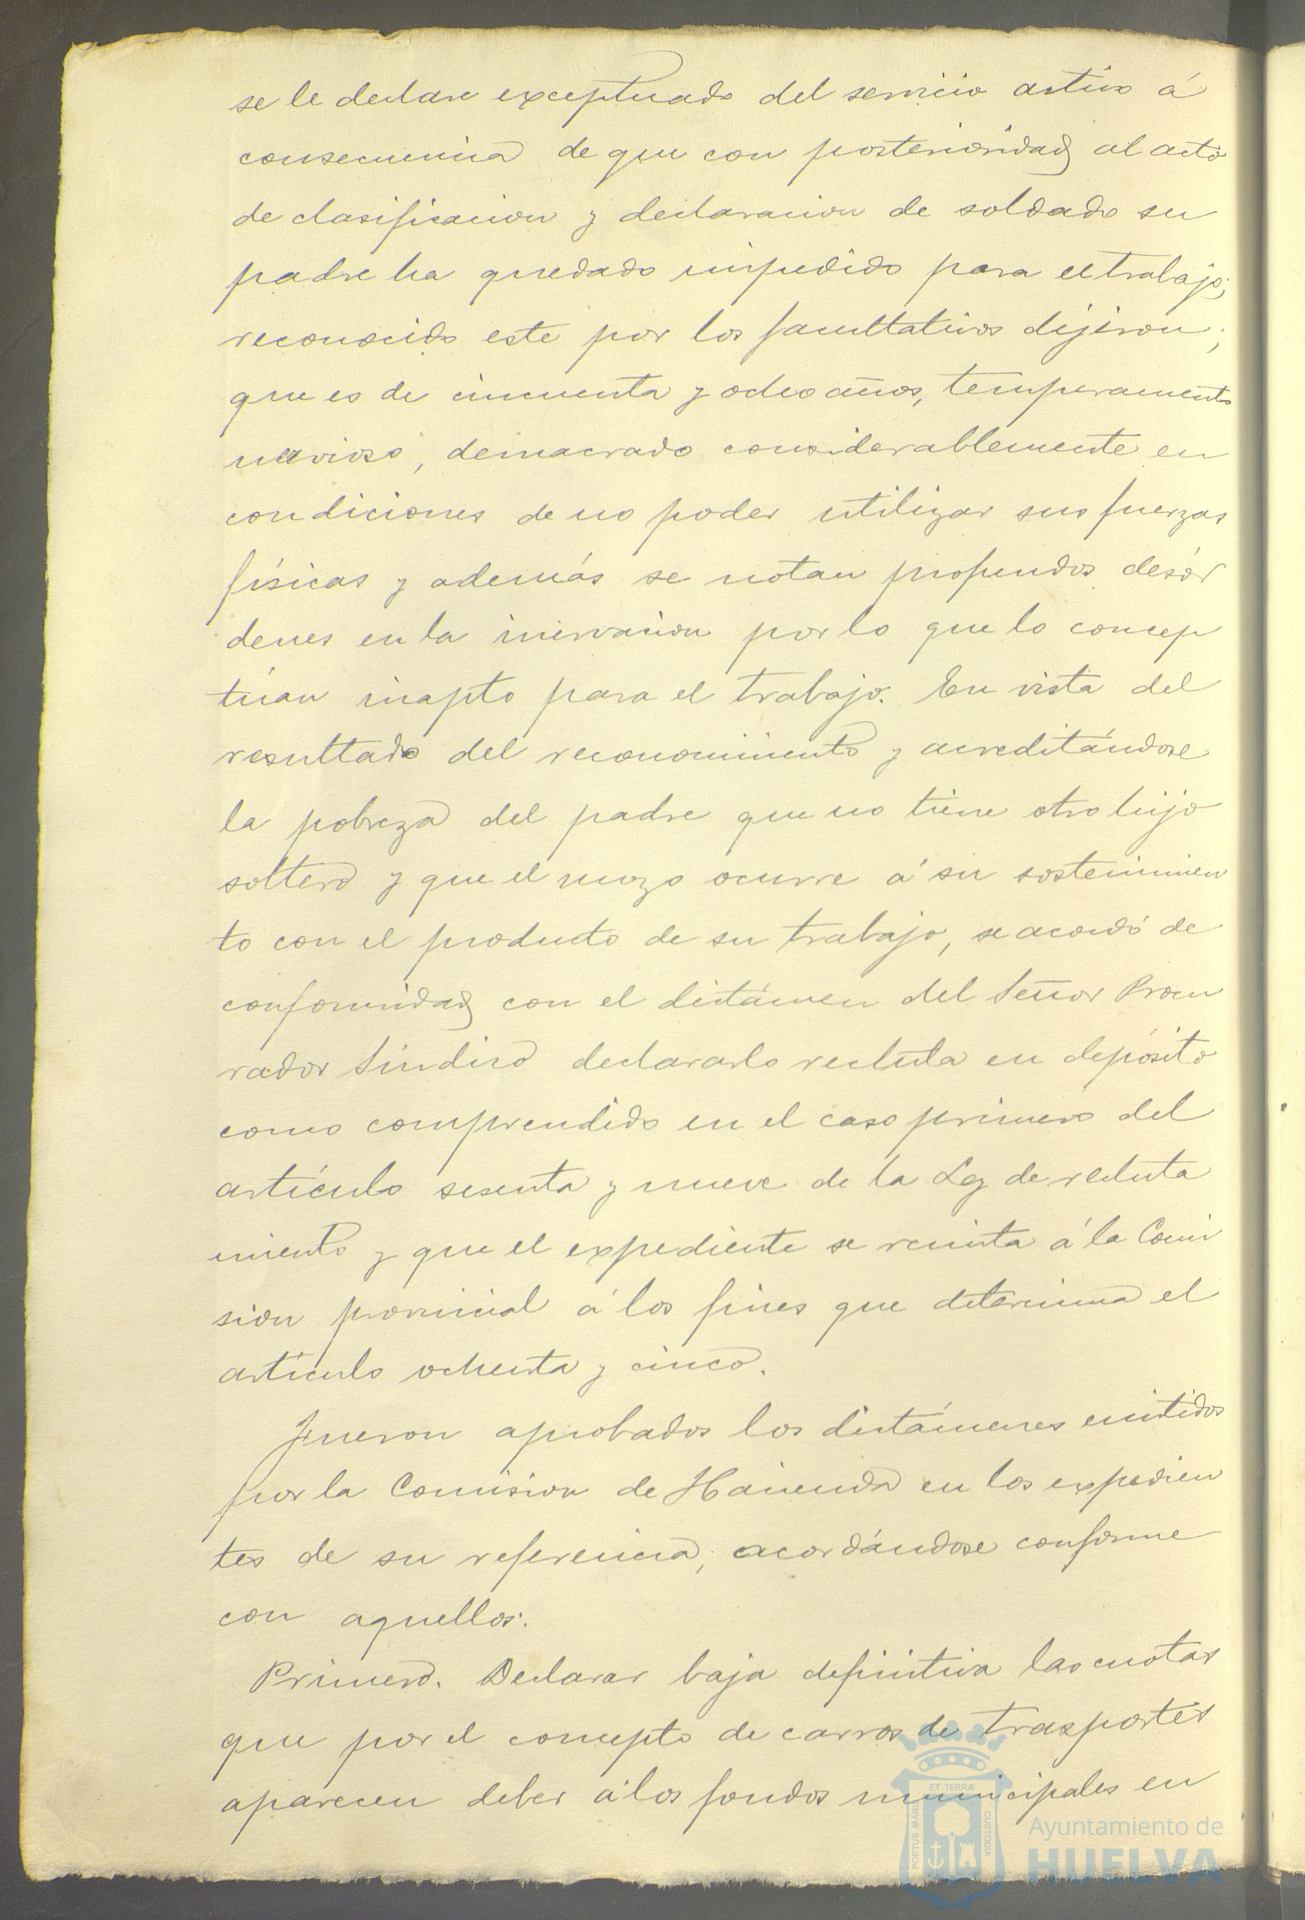 se le declare exceptuado del servicio activo á
consecuencia de que con posterioridad al acto
de clasificacion y declaracion de soldado su
padre ha quedado impedido para el trabajo;
reconocido este por los facultativos dijeron;
que es de cincuenta y ocho años, temperamento
nervioso, demacrado considerablemente en
condiciones de no poder utilizar sus fuerzas
físicas y además se notan profundos desór
denes en la inervacion por lo que lo concep
túan inapto para el trabajo. En vista del
resultado del reconocimiento y acreditándose
la pobreza del padre que no tiene otro hijo
soltero y que el mozo ocurre á su sostenimien
to con el producto de su trabajo, se acordó de
conformidad con el dictámen del Señor Procu
rador Síndico declararlo recluta en depósito
como comprendido en el caso primero del
artículo sesenta y nueve de la Ley de recluta
miento y que el expediente se remita á la Comi
sion provincial á los fines que determina el
artículo ochenta y cinco.
Fueron aprobados los dictámenes emitidos
por la Comision de Hacienda en los expedien
tes de su referencia, acordándose conforme
con aquellos:
Primero. Declarar baja definitiva las cuotas
que por el concepto de carros de trasportes
aparecen deber á los fondos municipales en
ET TERRÆ
PORTUS MARIS
CUSTODIA
Ayuntamiento de
HUELVA